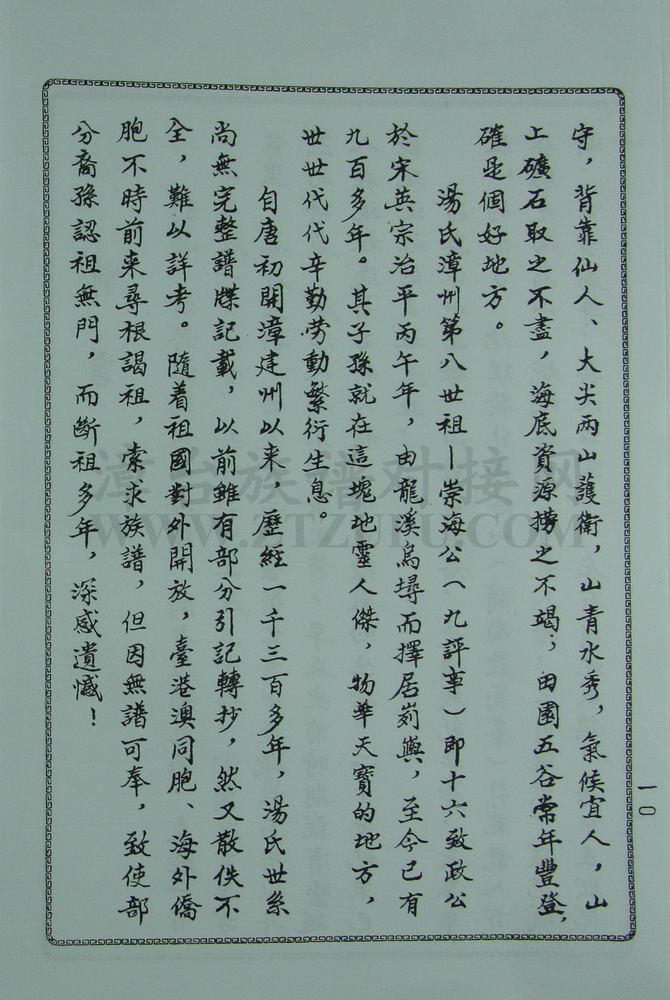 守，背靠仙人、大尖两山護衛，山青水秀，氣候宜人，山
上礦石取之不盡，海底資源撈之不竭；田園五谷常年豐登，
確是個好地方。
湯氏漳州第八世祖—崇海公（九評事）即十六致政公
於宋英宗治平丙午年，由龍溪烏墧而擇居崱嶼，至今已有
九百多年。其子孫就在這塊地靈人傑，物華天寶的地方，
世世代代辛勤劳動繁衍生息。
自唐初開漳建州以来，歷經一千三百多年，湯氏世系
尚無完整譜牒記載，以前雖有部分引記轉抄，然又散佚不
全，難以詳考。隨着祖國對外開放，臺港澳同胞、海外僑
胞不時前来尋根謁祖，索求族譜，但因無譜可奉，致使部
分裔孫認祖無門，而斷祖多年，深感遺憾！
一〇
漳台族谱对接网
WWW.ZTZUPU.COM